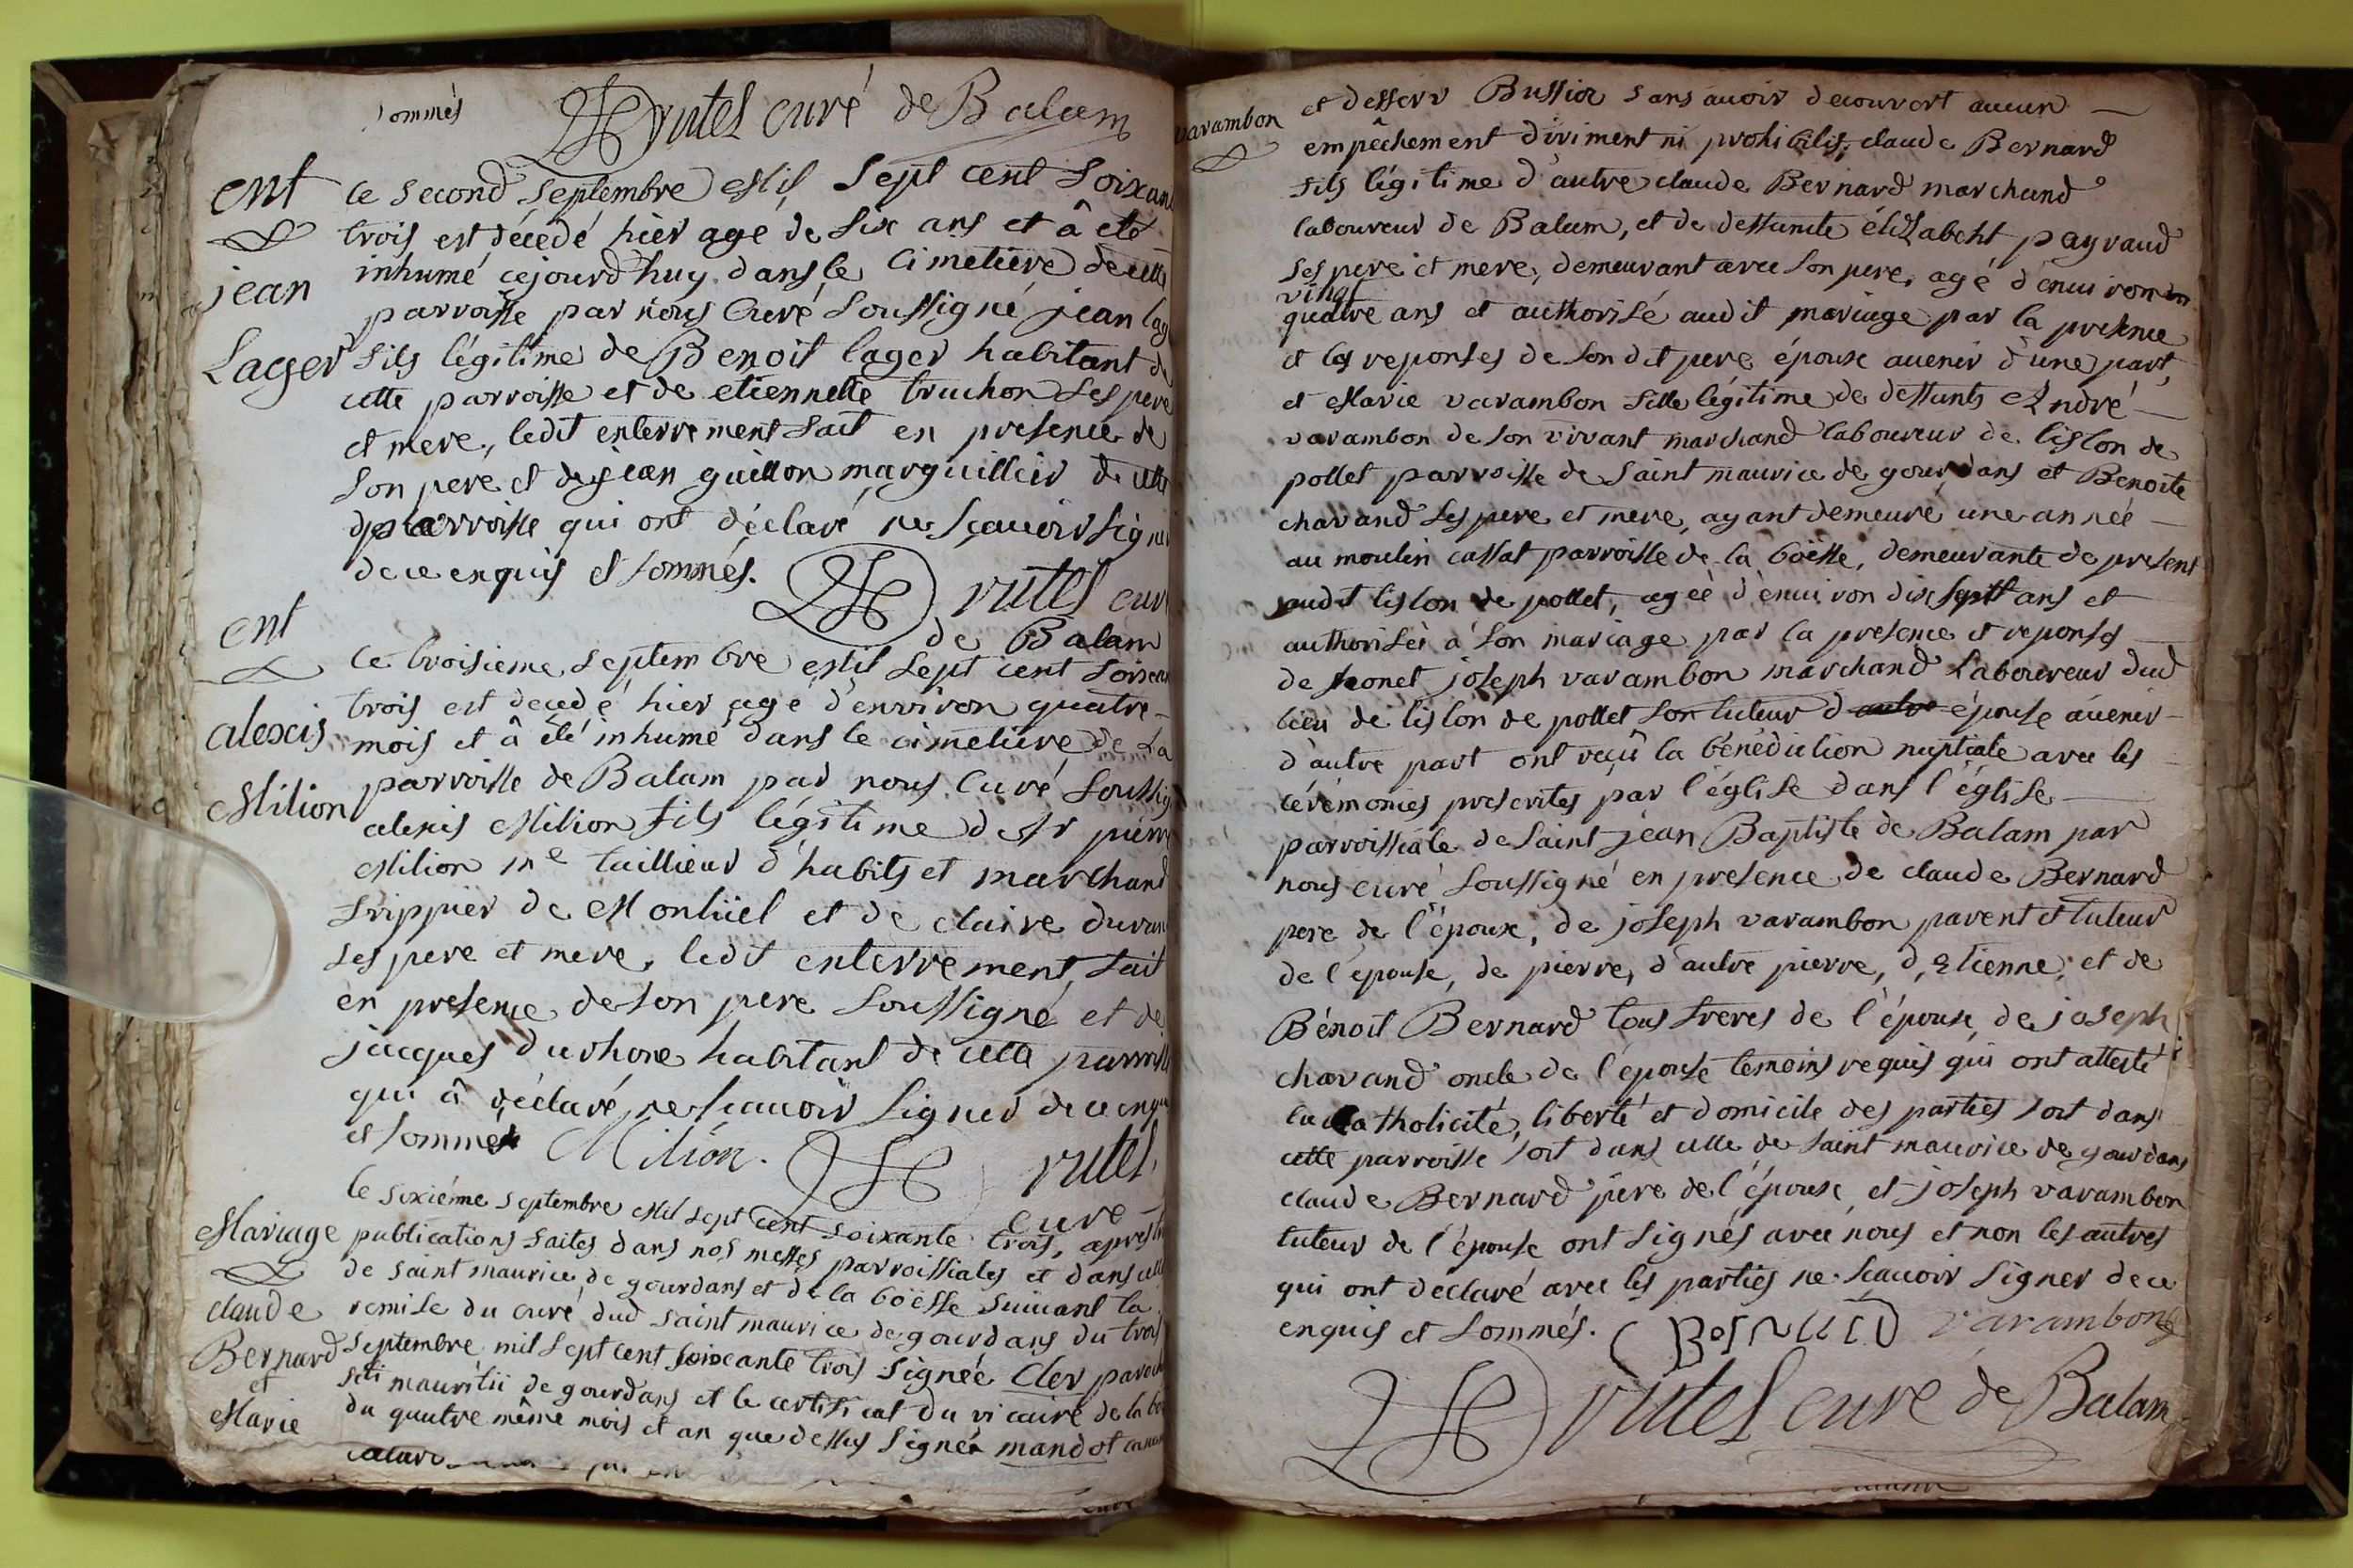 sommés
Brutel curé de Balam
ent
le second septembre Mil sept cent soixan
trois est décedé hier agé de six ans et â eté
inhumé cejourd'huy dans le cimetiere de cette
jean
parroisse par nous Curé soussigné jean lag
Lager
fils légitime de Benoit lager habitant de
cette parroisse et de etiennette truchon ses pere
et mere, ledit enterrement fait en presence de
son pere et de jean guillon marguillier de cette
parroisse qui ont déclaré ne sçauoir signer
de ce enquis et sommés. Brutel cur
de Balam
ent
le troisieme septembre Mil sept cent soixan
trois est decedé hier agé d'environ quatre
alexis
mois et â été inhumé dans le cimetiere de La
Milion
parroisse de Balam par nous Curé soussig
alexis Milion fils légitime de Sr pierre
Milion me taillieur d'habits et marchand
frippier de Montüel et de claire duran
ses pere et mere, ledit enterrement fait
en presence de son pere soussigné et de
jacques durhone habitant de cette parroisse
qui â déclaré ne scauoir signer de ce enqui
et sommé Milion. Brutel
curé
le sixiéme septembre Mil sept cent soixante trois, apres
Mariage
publications faites dans nos messes parroissiales et dans celle
de saint maurice de gourdans et de la boësse suiuant la
claude
remise du curé dud saint maurice de gourdans du trois
Bernard
septembre mil sept cent soixante trois signée Cler paroch
et
sti mauritii de gourdans et le certificat du vicaire de la bo
Marie
du quatre même mois et an que dessus signée mandot
varambon
et desserv Bussior sans auoir decouvert aucun
empêchement diriment ni prohibitif, claude Bernard
fils légitime d'autre claude Bernard marchand
laboureur de Balam, et de deffunte élizabeht payraud
ses pere et mere, demeurant avec son pere, agé d'enuiron
vingt
quatre ans et authorisé audit mariage par la presence
et les reponses de son dit pere époux auenir d'une part,
et Marie varambon fille légitime de deffunts André
varambon de son vivant marchand laboureur de lislon de
pollet parroisse de saint maurice de gourdans et Benoite
charand ses pere et mere, ayant demeuré une année
au moulin cassat parroisse de la boësse, demeurante de present
audit lislon de pollet, agée d'enuiron dix sept ans et
authorisée à son mariage par la presence et reponses
de honet joseph varambon marchand Laboureur dud
lieu de lislon de pollet son tuteur d autre épouse auenir
d'autre part ont reçû la bénédiction nuptiale avec les
cérémonies prescrites par l'église dans l'église
parroissiale de saint jean Baptiste de Balam par
nous curé soussigné en presence de claude Bernard
pere de l'époux, de joseph varambon parent et tuteur
de l'épouse, de pierre, d'autre pierre, d'Etienne, et de
Bénoit Bernard tous freres de l'époux, de joseph
charand oncle de l'épouse temoins requis qui ont attesté
la Catholicité, liberté et domicile des parties soit dans
cette parroisse soit dans celle de saint maurice de gourdans
claude Bernard père de l'époux et joseph varambon
tuteur de l'épouse ont signés avec nous et non les autres
qui ont declaré avec les parties ne sçauoir signer de ce
enquis et sommés. C Bernard varambon
Brutel curé de Balam